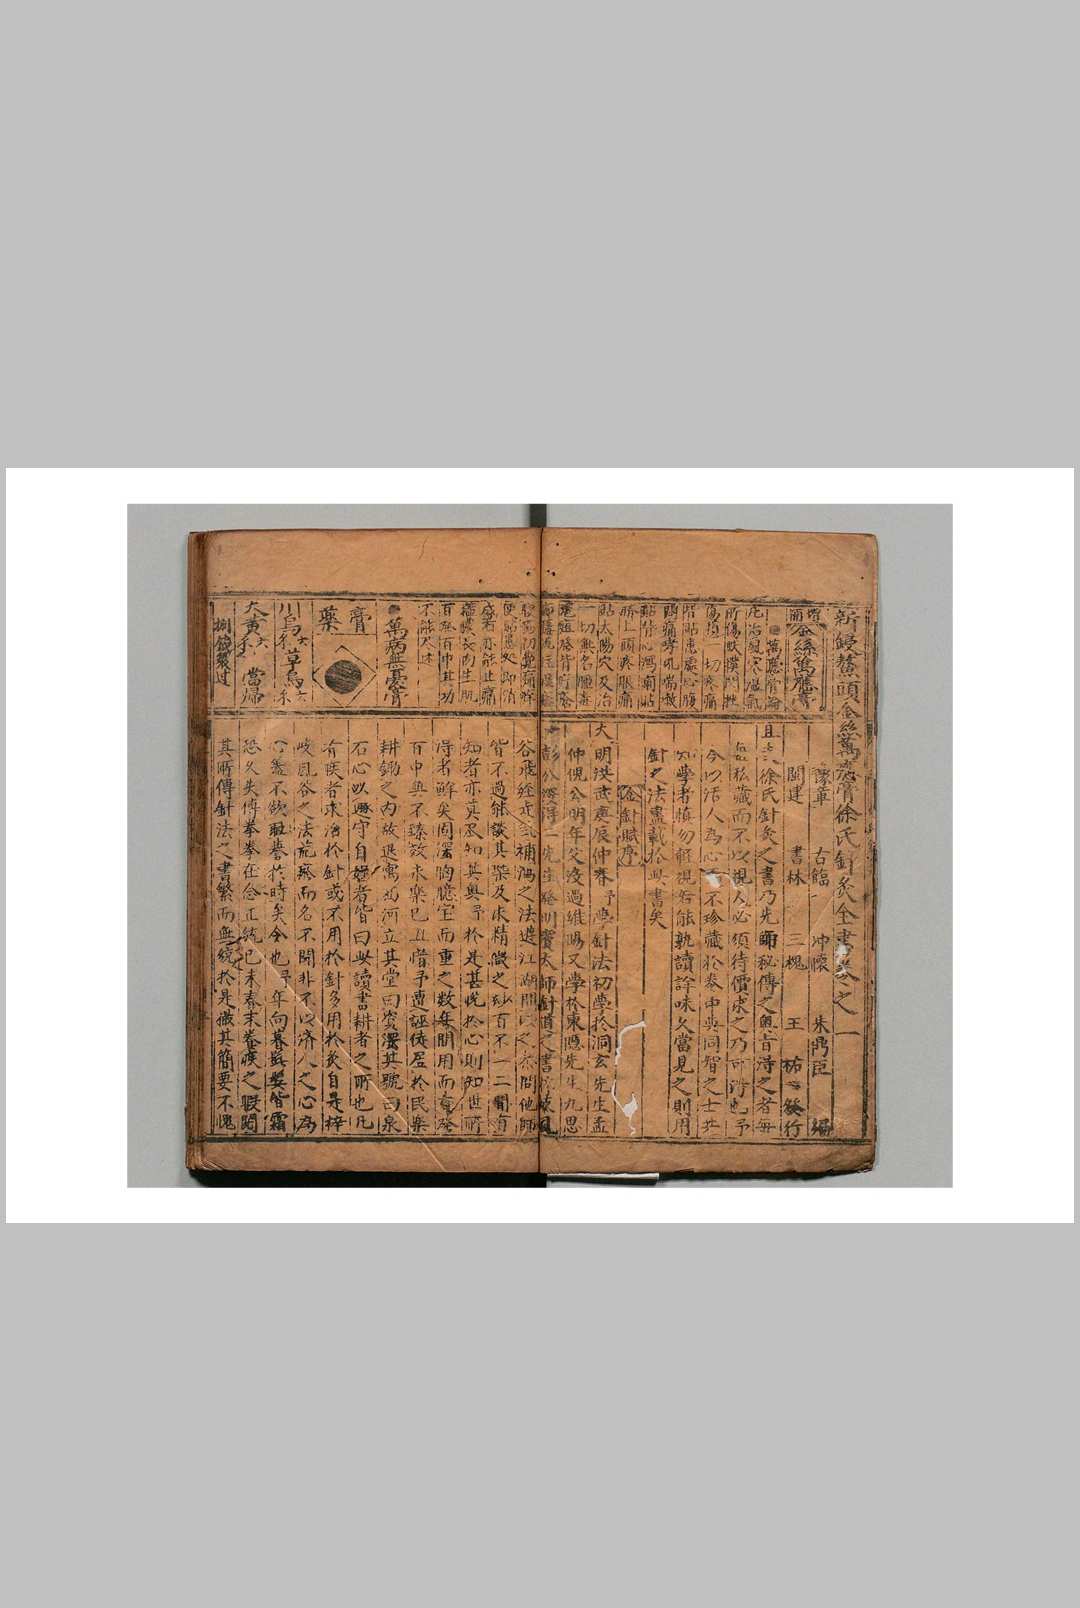 新鋟鰲頭金絲萬應膏徐氏針灸全書卷之一
豫章 古臨 冲懷 朱鼎臣 編
閩建 書林 三槐 王祐 發行
徐氏針灸之書乃先師秘傳之奧旨得之者每
每私藏而不以視人必須待價求之乃可得也予
今以活人為心 不珍藏於卷中與同智之士共
知學者慎勿輕視若能熟讀詳味久當見之則用
針之法盡載於此書矣
金針賦序
大明洪武庚辰仲春予學針法初學於洞玄先生孟
仲倪公明年父沒過維陽又學於東隱先生九思
彭公深得二先生發明竇太師針道之書
谷飛經走氣補瀉之法遊江湖間以之參問他師
皆不過能談其槩及求精微之妙百不一二間有
知者亦莫盡知其奧予於是甚悅於心則知世所
得者鮮矣固深胸臆寶而重之數年間用而百發
百中無不臻效永樂己丑惜予遭誣徒居於民樂
耕鋤之內故退寓西河立其堂曰資深其號曰泉
石心以遯守自娛者皆曰此讀書耕者之所也凡
有疾者求治於針或不用於針多用於灸自是梓
岐風谷之法荒廢而名不聞非不以濟人之心為
心蓋不欲取譽於時矣今也予年向暮髭鬢皆霜
恐久失傳拳拳在念正統己未春末養疾之暇閱
其所傳針法之書繁而無統於是撮其簡要不愧
金絲萬應膏
萬應膏論
此治風寒濕氣
所傷跌撲閃挫
傷損一切疼痛
皆貼患處心腹
痛
貼背心瀉痢貼
臍上頭疼眼痛
貼太陽穴及治
一切無名腫毒
初覺痛痒
便貼患處即消
盛者亦能止痛
蘊膿長肉生肌
百發百中其功
不能尽述
萬病無憂膏
膏藥
川烏 六錢 草烏 六錢
大黃 六錢 當歸